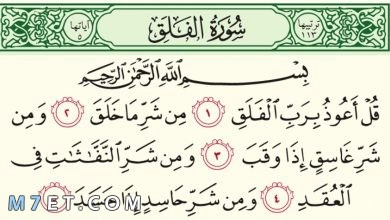 ترتيبها ١١٣ سُورَةُ الفَلَقِ آياتها ٥
بِسْمِ اللَّهِ الرَّحْمَٰنِ الرَّحِيمِ
قُلْ أَعُوذُ بِرَبِّ الْفَلَقِ ١ مِن شَرِّ مَا خَلَقَ ٢ وَمِن
شَرِّ غَاسِقٍ إِذَا وَقَبَ ٣ وَمِن شَرِّ النَّفَّاثَاتِ فِي
الْعُقَدِ ٤ وَمِن شَرِّ حَاسِدٍ إِذَا حَسَدَ
M7ET.COM